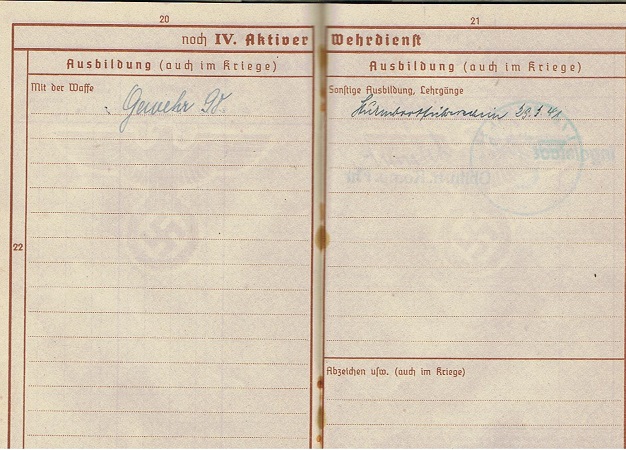 20
21
noch IV. Aktiver Wehrdienst
Ausbildung (auch im Kriege)
Ausbildung (auch im Kriege)
Mit der Waffe
Sonstige Ausbildung, Lehrgänge
Gewehr 98.
Sturmbootführerschein 29.3.41
22
Abzeichen usw. (auch im Kriege)